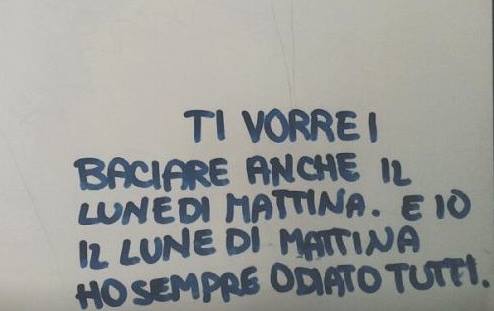 TI VORREI
BACIARE ANCHE IL
LUNEDI MATTINA. E IO
IL LUNEDI MATTINA
HO SEMPRE ODIATO TUTTI.